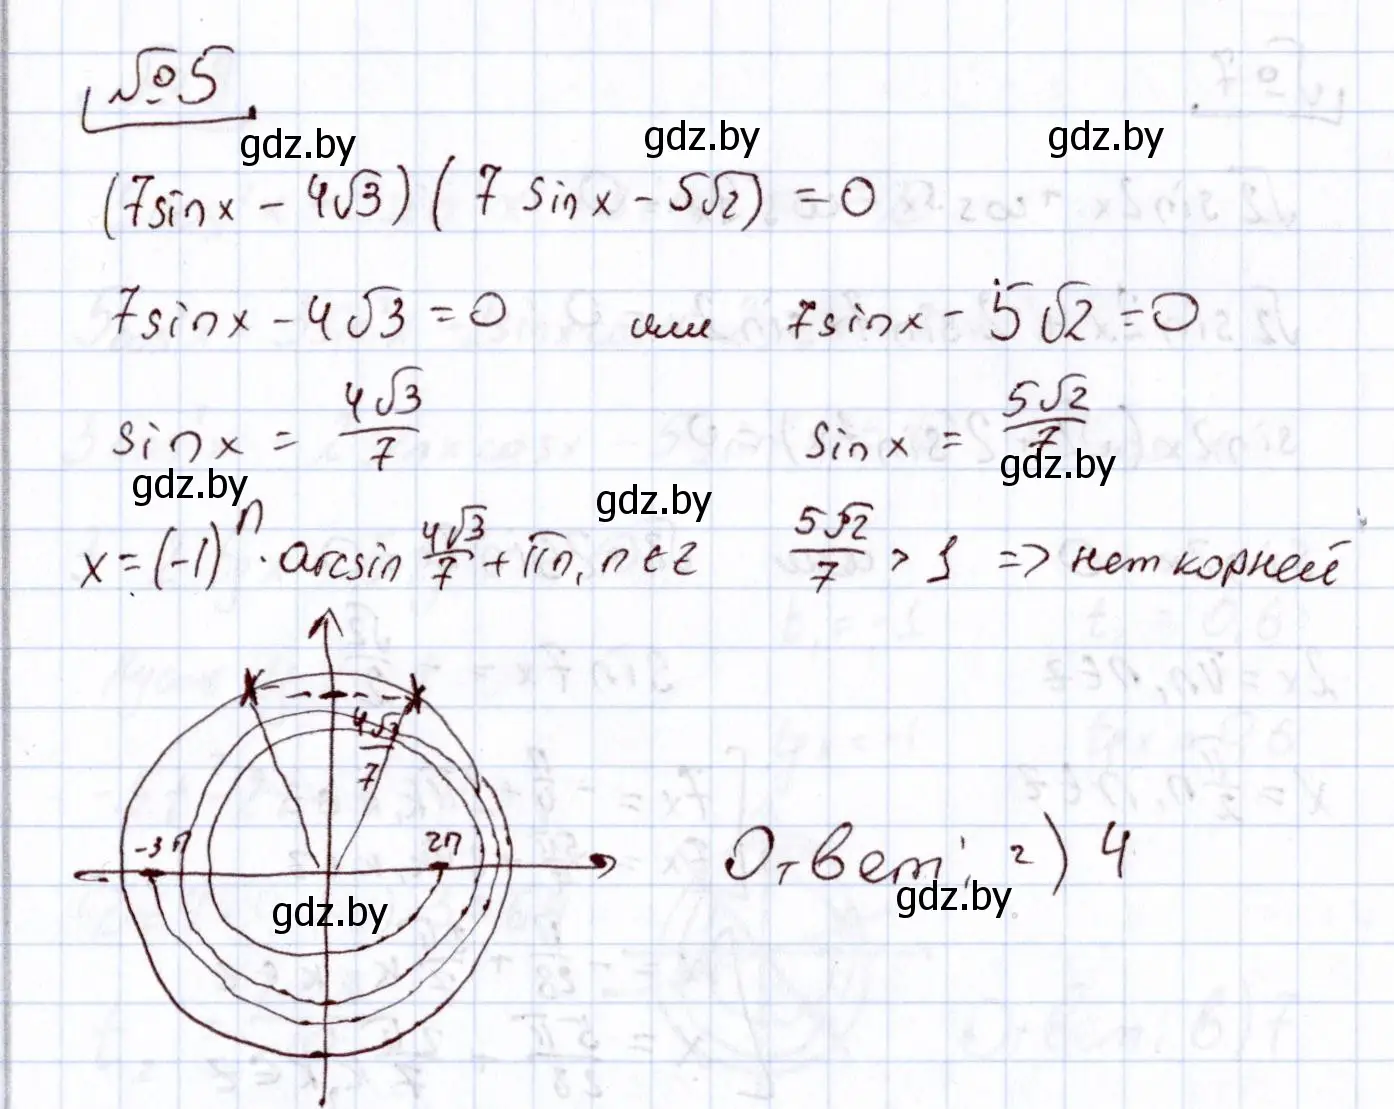 №5
gdz.by gdz.by gdz.by
(7sinx - 4√3)(7 sinx - 5√2) = 0
7sinx - 4√3 = 0 или 7sinx - 5√2 = 0
sinx = 4√3/7 sinx = 5√2/7
gdz.by gdz.by gdz.by
x = (-1)^n · arcsin 4√3/7 + πn, n ∈ Z 5√2/7 > 1 => нет корней
4√3/7
-3π 2π
Ответ: г) 4
gdz.by gdz.by